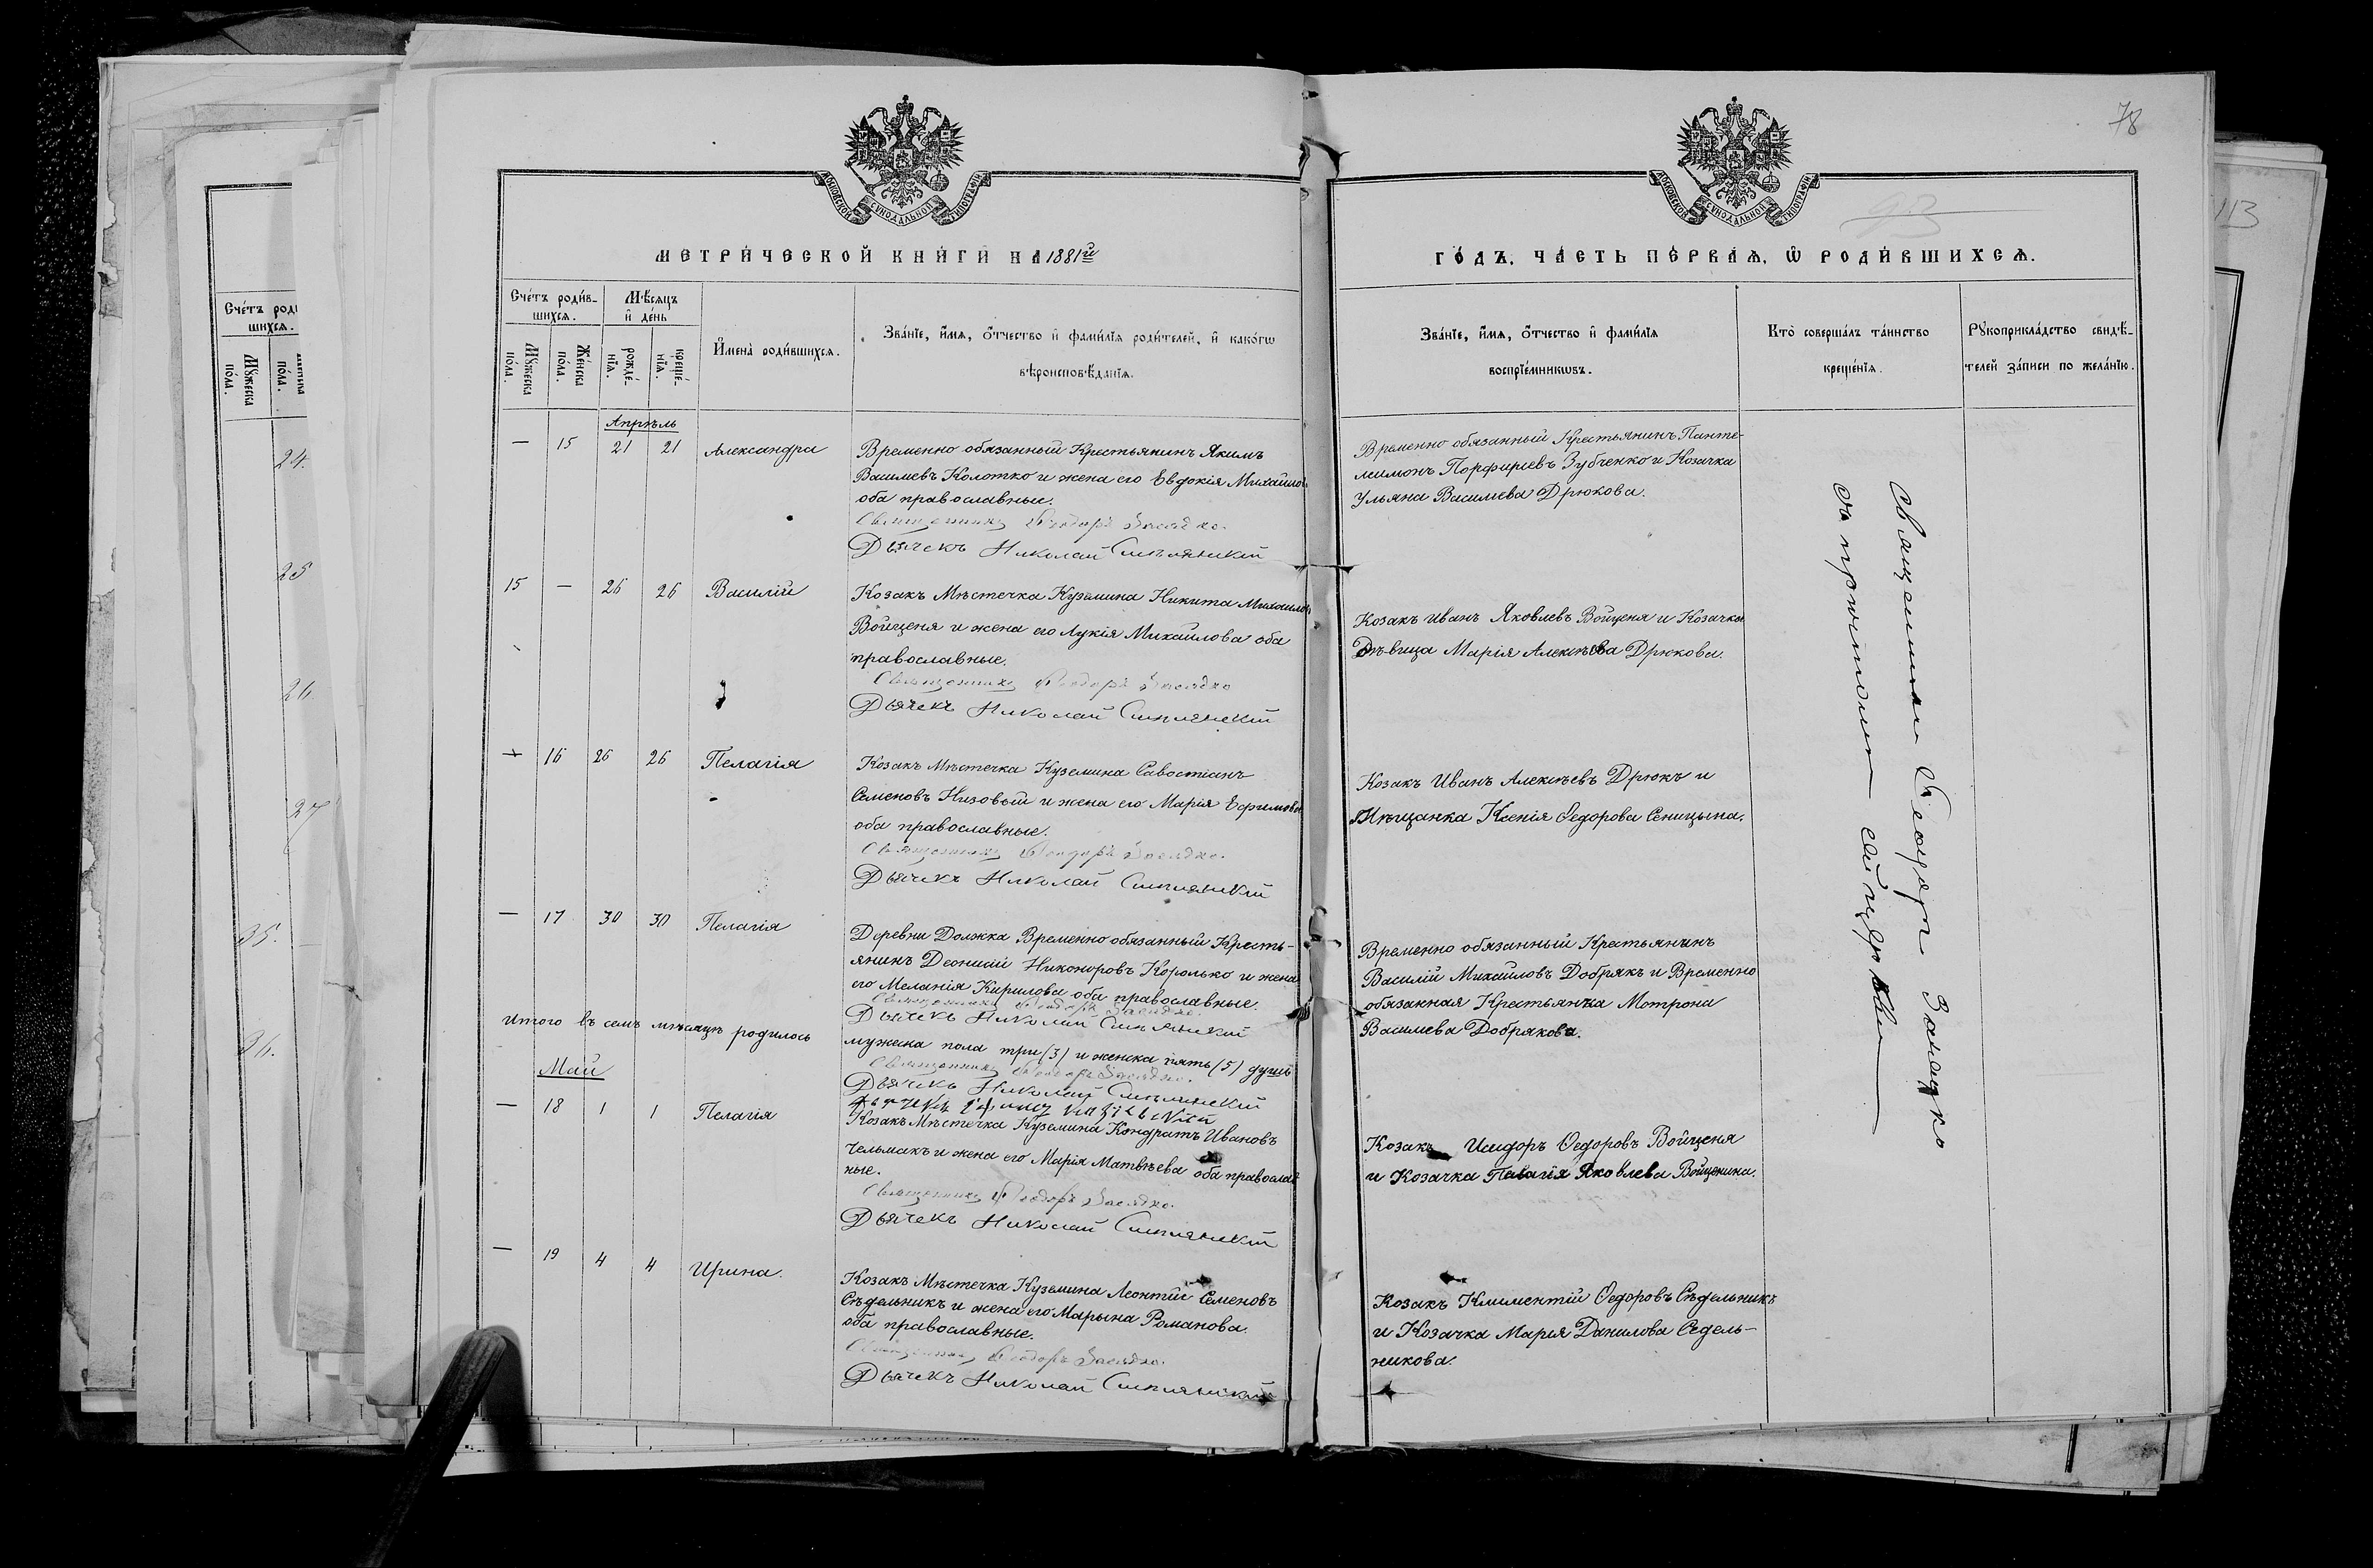 78
113
МОСКОВСКОЙ СѴНОДАЛЬНОЙ ТИПОГРАФІИ
МОСКОВСКОЙ СѴНОДАЛЬНОЙ ТИПОГРАФІИ
МЕТРИ́ЧЕСКОЙ КНИ́ГИ НА 1881й
ГО́ДЪ, ЧА́СТЬ ПЕ́РВАѦ, Ѡ РОДИ́ВШИХСѦ.
Сче́тъ роди́в-
шихсѧ.
Мꙋ́жеска по́ла.
Же́нска по́ла.
Мѣ́сѧцъ и҆ де́нь
рожде́-нїѧ.
креще́-нїѧ.
И҆мена̀ роди́вшихсѧ.
Зва́нїе, и҆́мѧ, о҆́тчество и҆ фами́лїѧ роди́телей, и҆ како́гѡ
вѣроисповѣ́данїѧ.
Зва́нїе, и҆́мѧ, о҆́тчество и҆ фами́лїѧ
воспрїе́мникѡвъ.
Кто̀ соверша́лъ та́инство
креще́нїѧ.
Рꙋкоприкла́дство свидѣ́-
телей за́писи по жела́нїю.
Сче́тъ роди
шихсѧ.
Мꙋ́жеска по́ла.
24.
25
26.
27
35.
36.
Апрѣль
— 15 21 21 Александра
Временно обязанный Крестьянинъ Якимъ
Васильевъ Колотко и жена его Евдокія Михайлов
оба православные.
Священникъ Ѳеодоръ Засядко.
Дьячекъ Николай
Временно обязанный Крестьянинъ Панте-
леимонъ Порфирьевъ Зубченко и Козачка
Ульяна Васильева Дрюкова.
15 — 26 26 Василій
Козакъ Мѣстечка Куземина Никита Михаилов
Войценя и жена его Лукія Михаилова оба
православные.
Священникъ Ѳеодоръ Засядко
Дьячекъ Николай
Козакъ Иванъ Яковлевъ Войценя и Козачка
Дѣвица Марія Алексѣева Дрюкова.
— 16 26 26 Пелагія
Козакъ Мѣстечка Куземина Савостіанъ
Семеновъ Низовый и жена его Марія Ефимова
оба православные.
Священникъ Ѳеодоръ Засядко.
Дьячекъ Николай
Козакъ Иванъ Алексѣевъ Дрюкъ и
Мѣщанка Ксенія Ѳедорова Сеницына.
— 17 30 30 Пелагія
Деревни Должка Временно обязанный Кресть-
янинъ Деонисій Никоноровъ Королько и жена
его Меланія Кирилова оба православные.
Священникъ Ѳеодоръ Засядко.
Дьячекъ Николай
Временно обязанный Крестьянинъ
Василій Михаиловъ Добрякъ и Временно
обязанная Крестьянка Мотрона
Васильева Добрякова.
Итого въ семъ мѣсяцѣ родилось
мужеска пола три (3) и женска пять (5) душъ
Священникъ Ѳеодоръ Засядко.
Дьячекъ Николай
Май
— 18 1 1 Пелагія
Козакъ Мѣстечка Куземина Кондратъ Ивановъ
Чельмакъ и жена его Марія Матвѣева оба православ
ные.
Священникъ Ѳеодоръ Засядко.
Дьячекъ Николай
Козакъ Исидоръ Ѳедоровъ Войценя
и Козачка Пелагія Яковлева Войценина.
— 19 4 4 Ирина.
Козакъ Мѣстечка Куземина Леонтій Семеновъ
Сѣдельникъ и жена его Марьяна Романова.
оба православные.
Священникъ Ѳеодоръ Засядко.
Дьячекъ Николай
Козакъ Климентій Ѳедоровъ Сѣдельникъ
и Козачка Марія Данилова Седель-
никова.
Священникъ Ѳеодоръ Засядко
съ причтомъ сей церкви